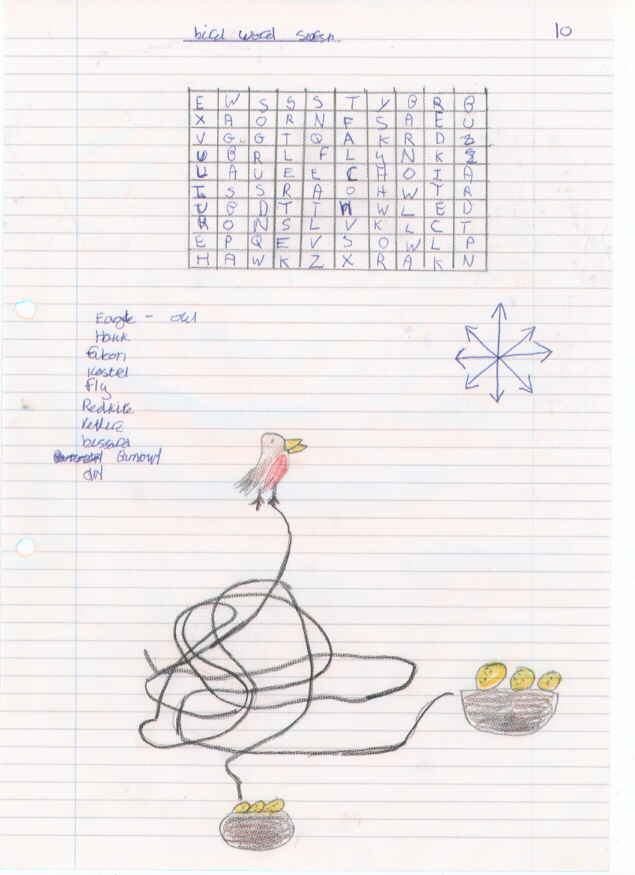 bird word 
10
E W S S S T Y B R B
X A O R N F S A E U
V G G T Q A K R D Z
U B R L F L Y N K Z
L A U E E C H O I A
T S S R A O H W T R
U B D T T N W L E D
R O N S L V K L C T
E P Q E V S O W L P
H A W K Z X R A K N
Eagle - owl
Hawk
falcon
kestrel
fly
Redkite
bussard
Barnowl
owl